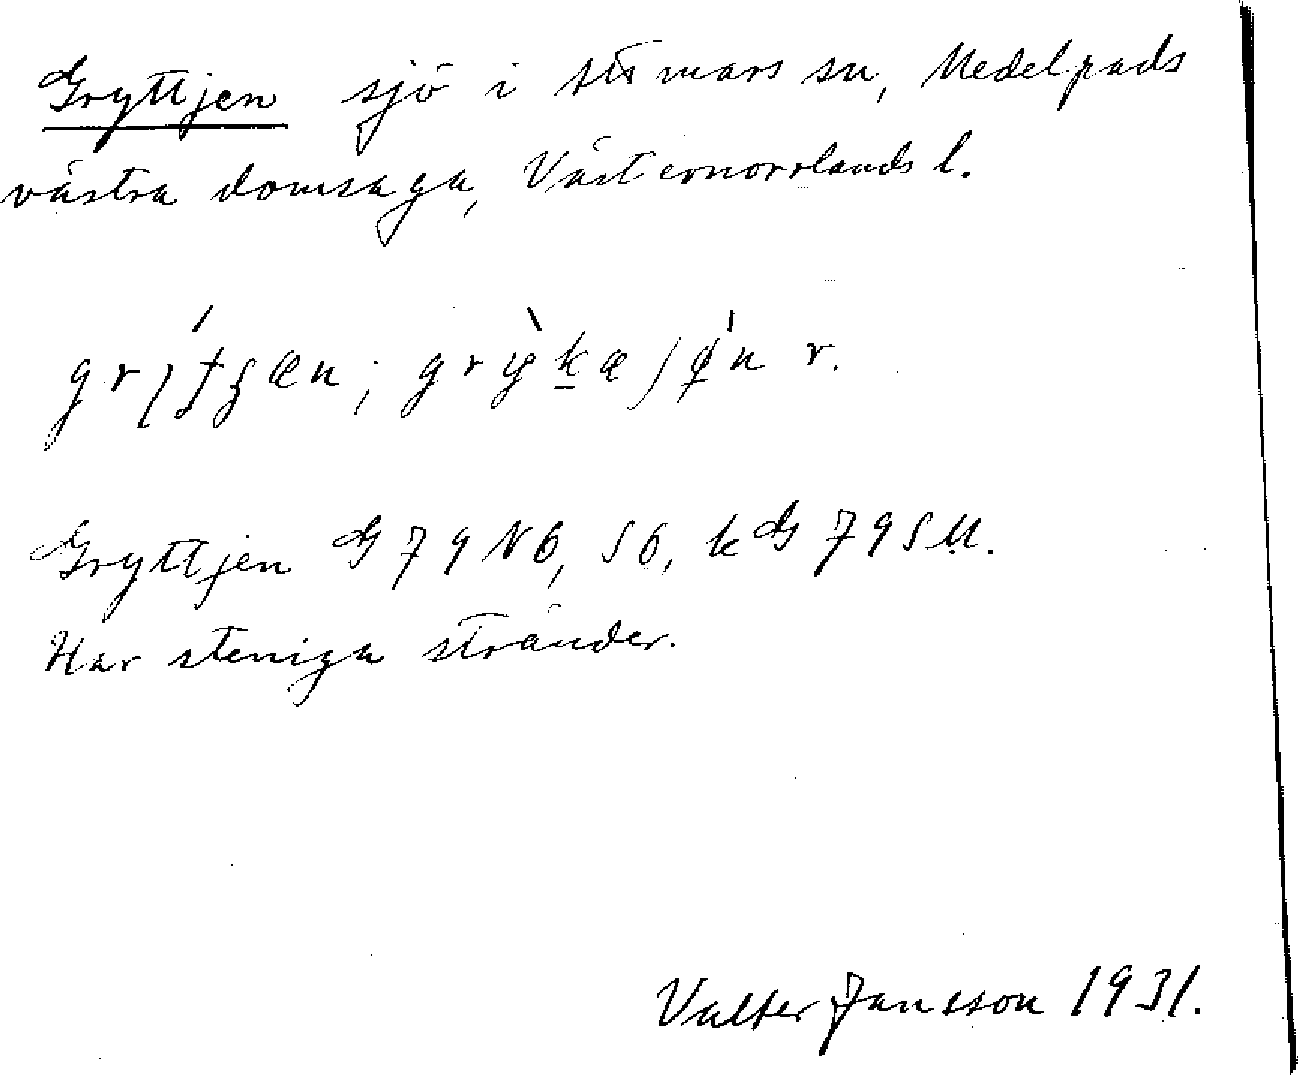 Gryttjen sjö i Attmars sn, Medelpads
västra domsaga, Västernorrlands l.
r.
Gryttjen G 79 NO, SO, kG 79 SU.
Har steniga stränder.
Valter Jansson 1931.